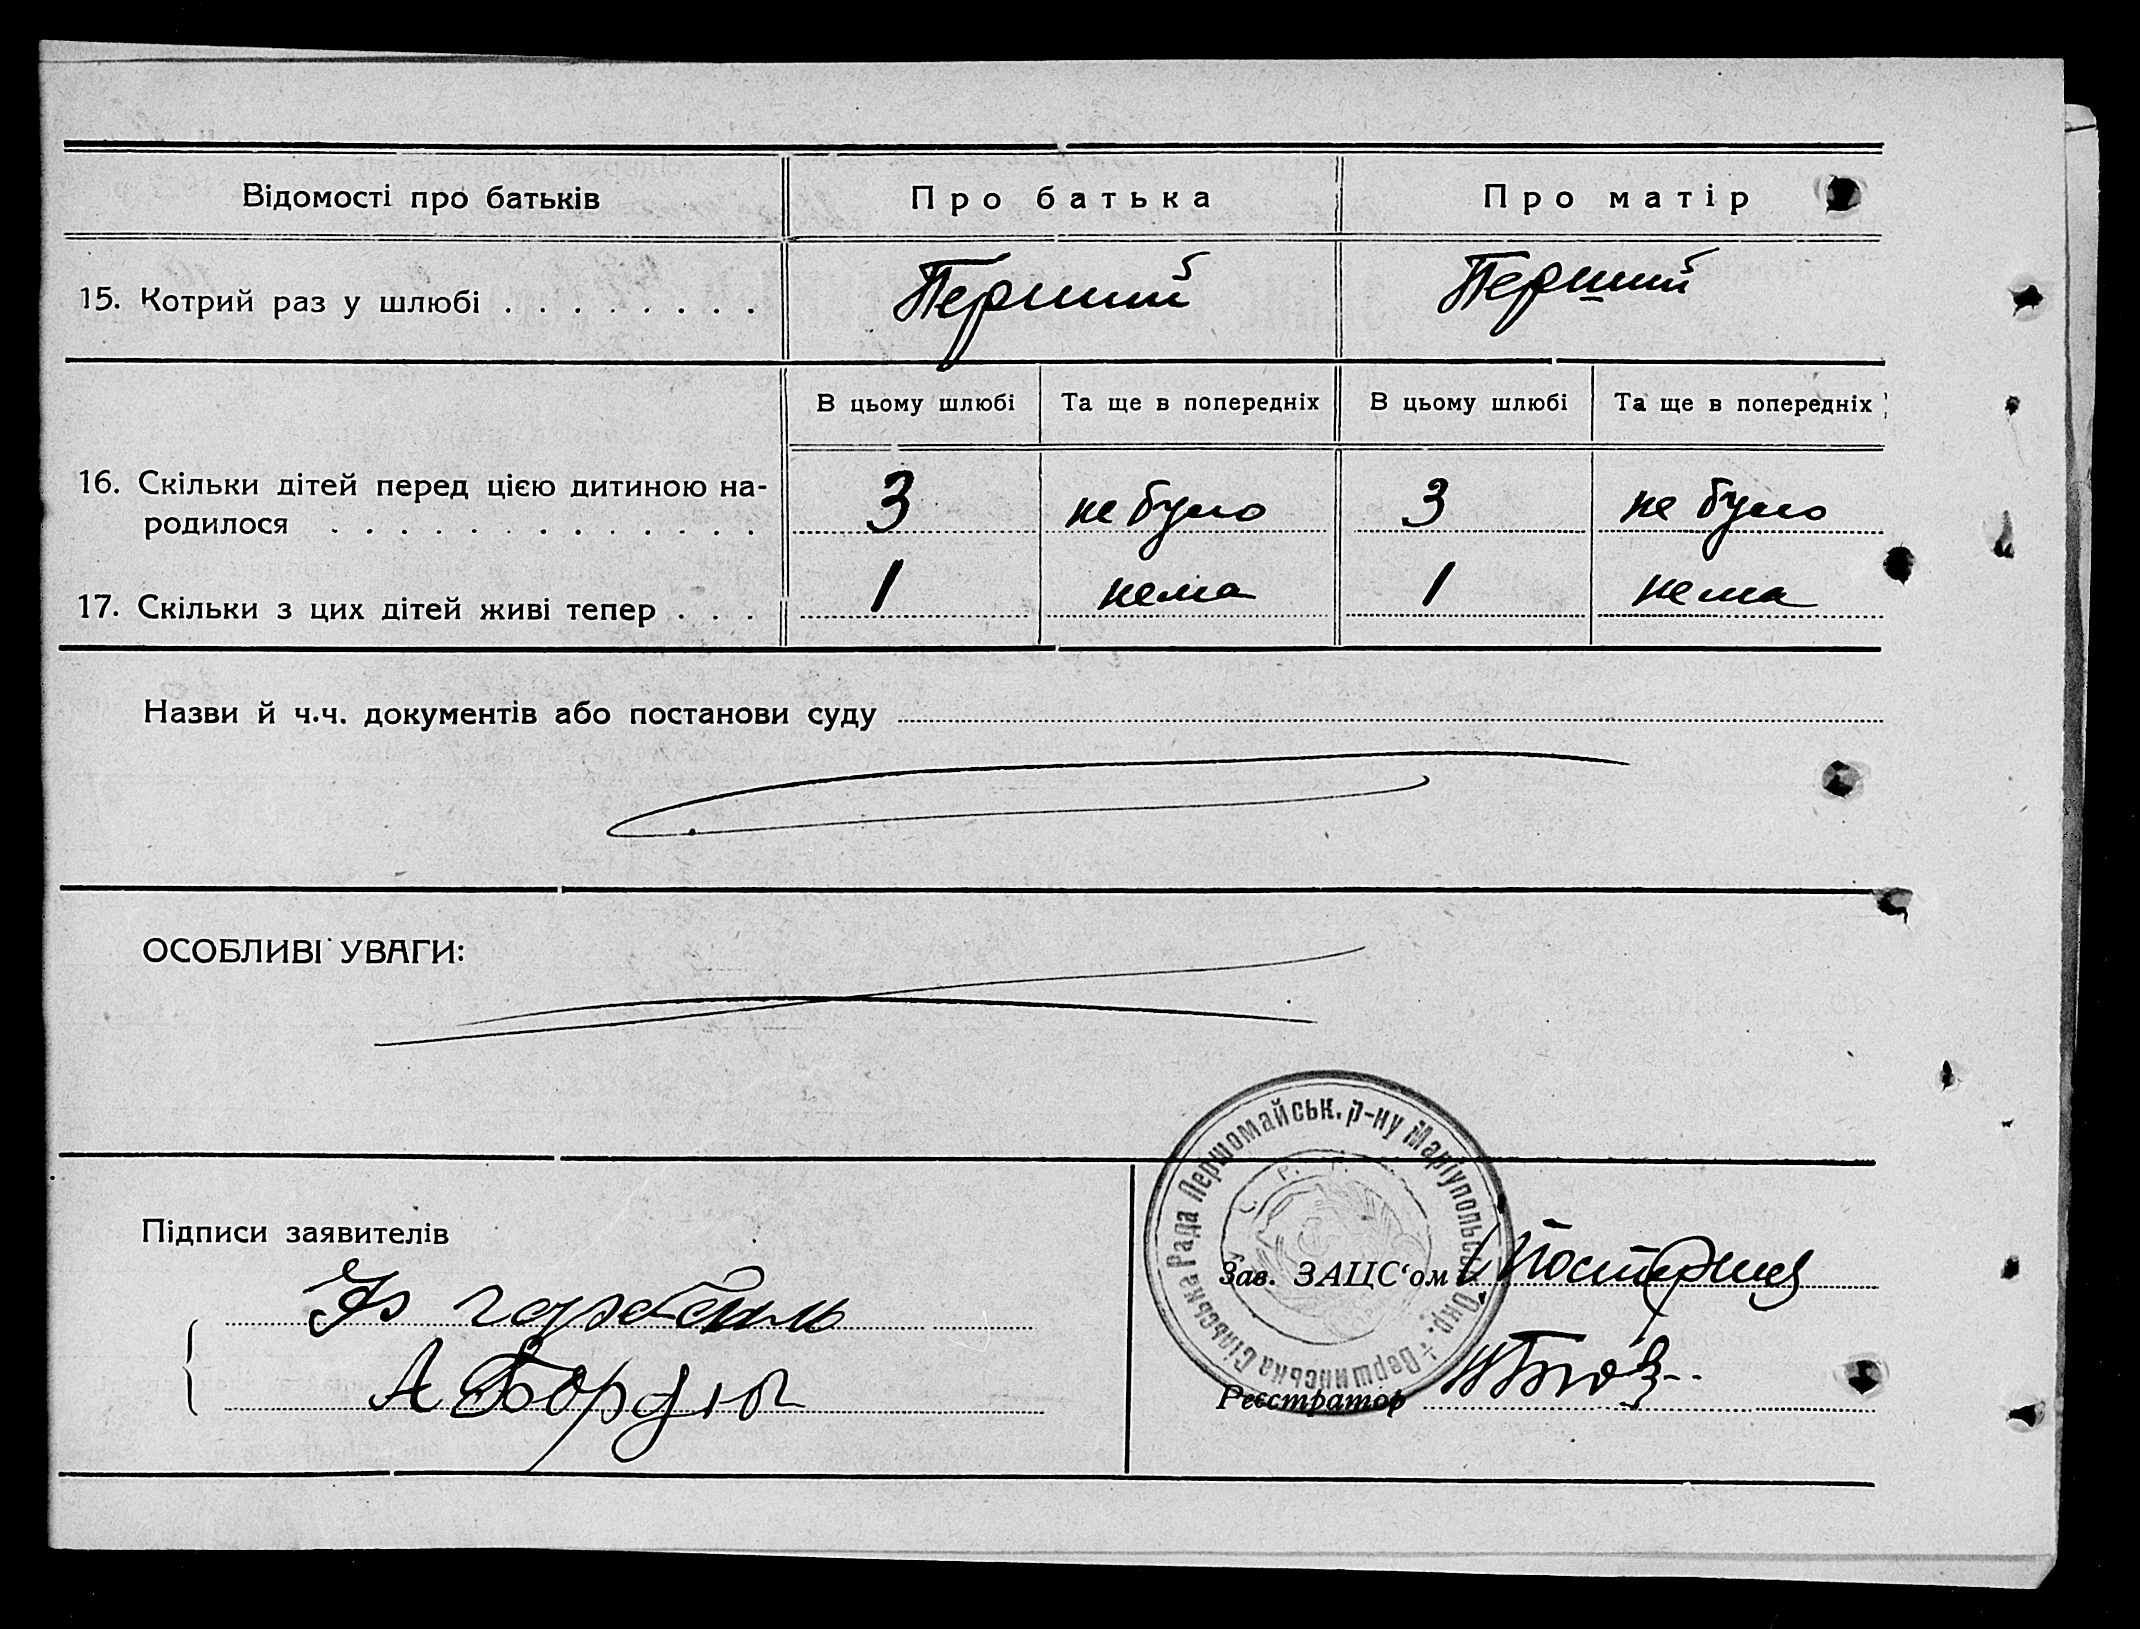 Відомості про батьків
Про батька
Про матір
15. Котрий раз у шлюбі . . . . . . . .
Перший
Перший
В цьому шлюбі
Та ще в попередніх
В цьому шлюбі
Та ще в попередніх
16. Скільки дітей перед цією дитиною на-
родилося . . . . . . . . . . . . .
3
не було
3
не було
17. Скільки з цих дітей живі тепер . . .
1
нема
1
нема
Назви й ч.ч. документів або постанови суду
ОСОБЛИВІ УВАГИ:
Вершинська Сільська Рада Першомайськ. р-ну Маріупольськ. Окр.
Підписи заявителів
Зав. ЗАЦС‘ом
Реєстратор